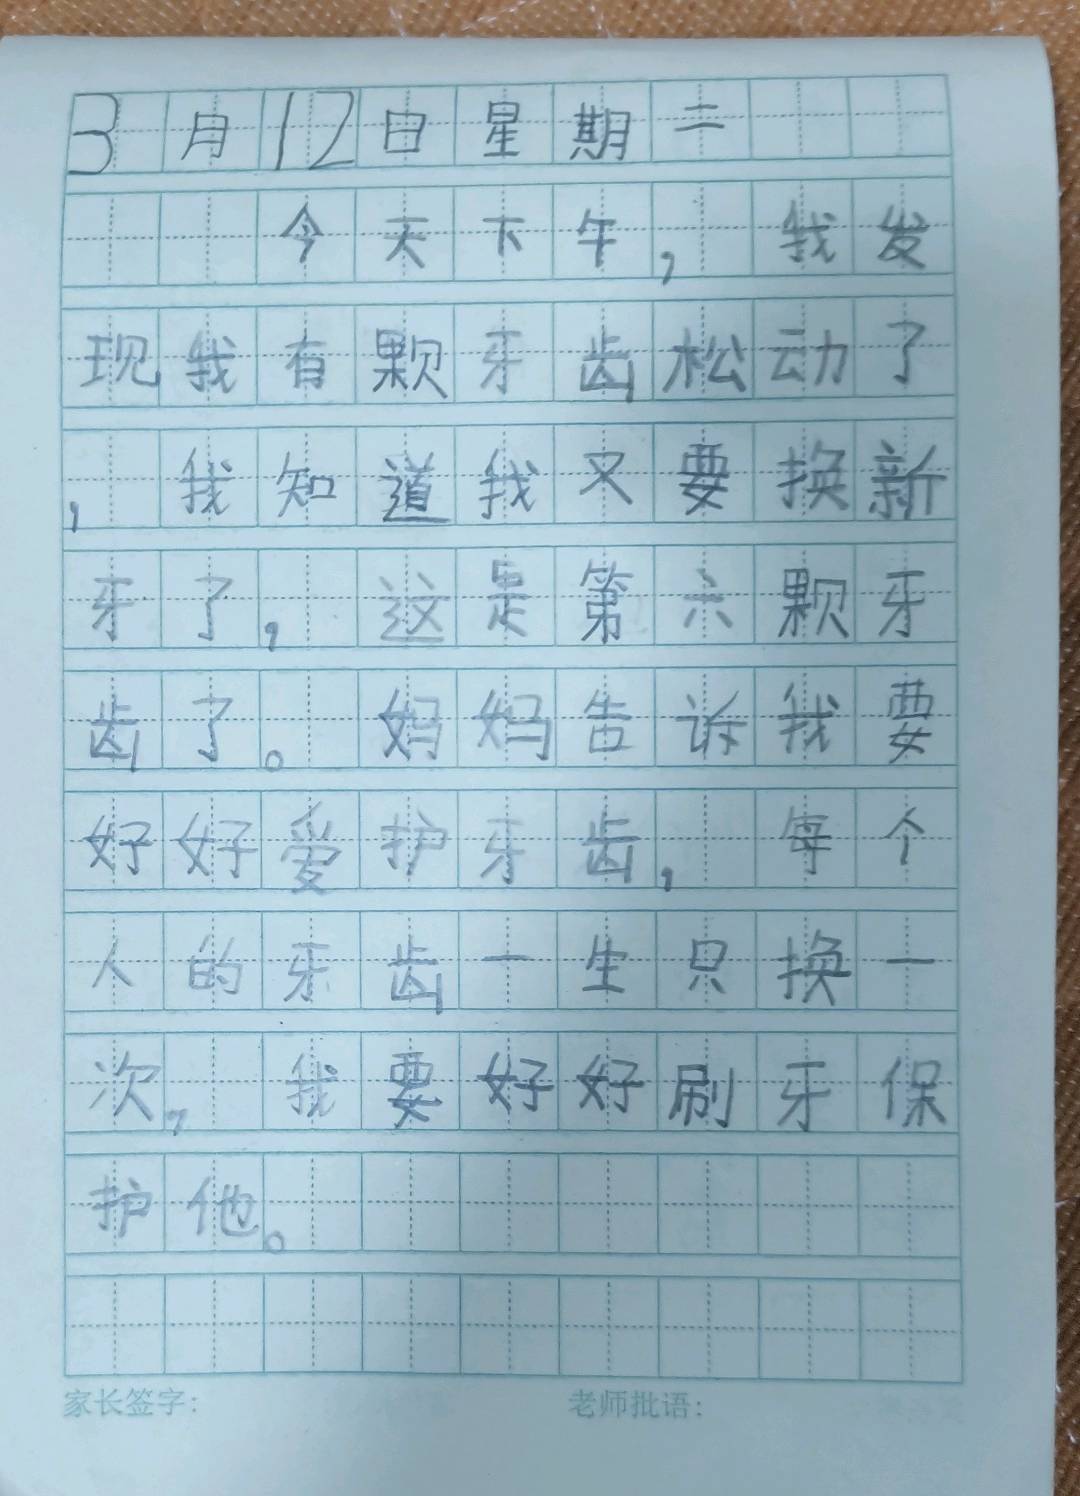 3月12日星期二
今天下午，我发
现我有颗牙齿松动了
，我知道我又要换新
牙了，这是第六颗牙
齿了。妈妈告诉我要
好好爱护牙齿，每个
人的牙齿一生只换一
次，我要好好刷牙保
护他。
家长签字： 老师批语：